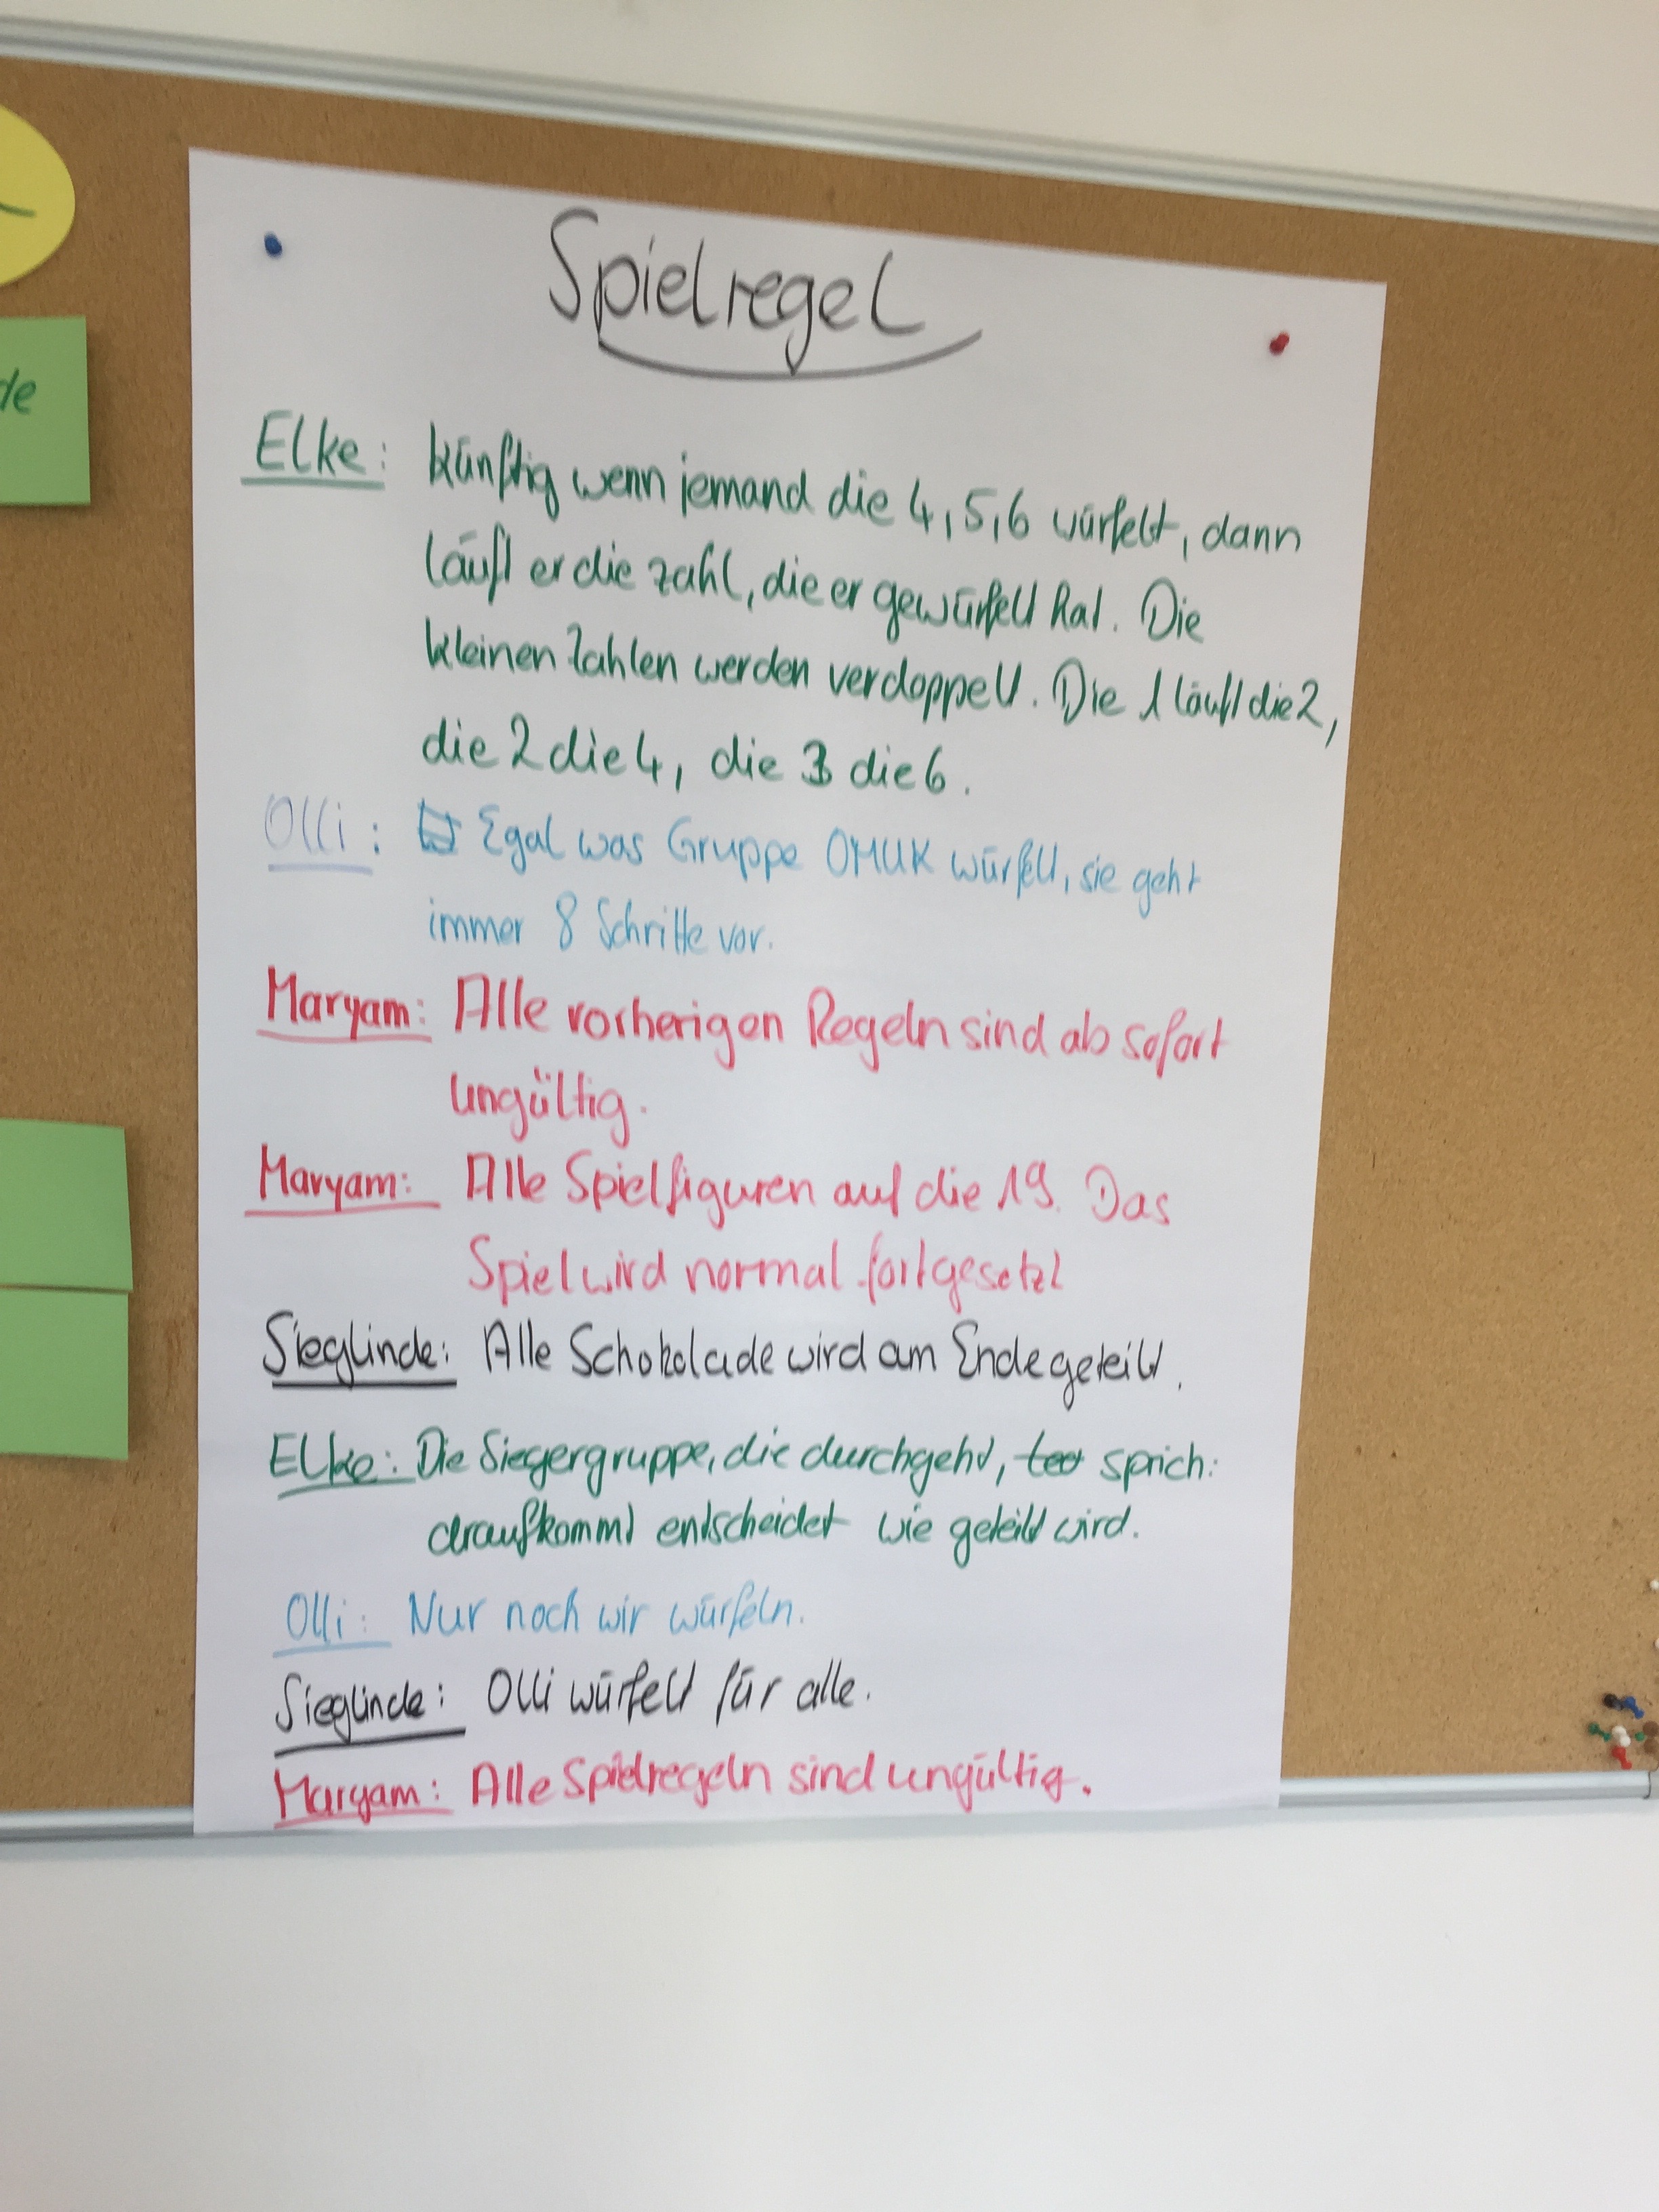 de
Spielregel
Elke: künftig wenn jemand die 4, 5, 6 würfelt, dann
läuft er die zahl, die er gewürfelt hat. Die
kleinen Zahlen werden verdoppelt. Die 1 läuft die 2,
die 2 die 4, die 3 die 6.
Olli: Egal was Gruppe OMUK würfelt, sie geht
immer 8 Schritte vor.
Maryam: Alle vorherigen Regeln sind ab sofort
ungültig.
Maryam: Alle Spielfiguren auf die 19. Das
Spiel wird normal fortgesetzt
Sieglinde: Alle Schokolade wird am Ende geteilt.
Elke: Die Siegergruppe, die durchgeht, sprich:
draufkommt entscheidet wie geteilt wird.
Olli: Nur noch wir würfeln.
Sieglinde: Olli würfelt für alle.
Maryam: Alle Spielregeln sind ungültig.